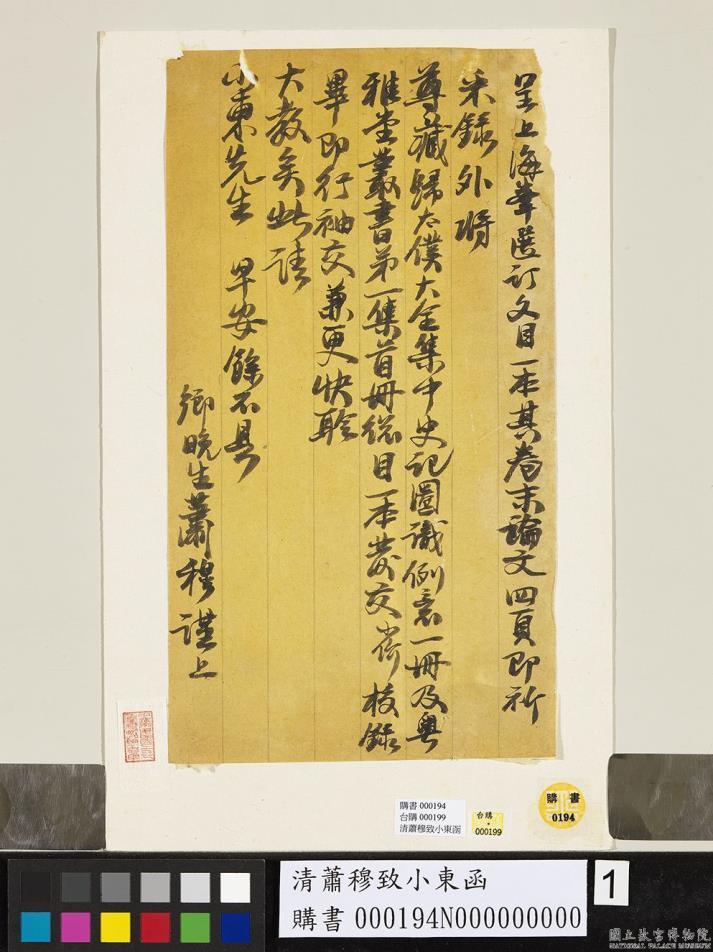 呈上海峯選訂文目一本其卷末論文四頁即祈
采錄外將
尊藏歸太僕大全集中史記圖識例意一冊及粵
雅堂叢書第一集首冊總目一本發交 俾校錄
畢即行袖交兼更快聆
大教矣此請
小東先生 早安餘不具
鄉晚生蕭穆謹上
購書 000194
台購 000199
清蕭穆致小東函
台購
000199
購書
0194
清蕭穆致小東函
購書 000194N000000000
1
國立故宮博物院
NATIONAL PALACE MUSEUM